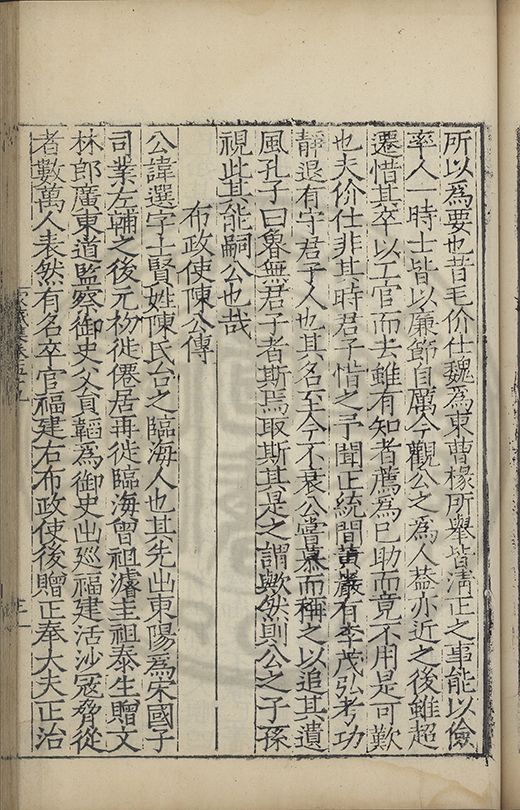 所以為要也昔毛价仕魏為東曹椽所舉皆清正之事能以儉
率人一時士皆以廉節自厲今觀公之為人葢亦近之後雖超
遷惜其卒以工官而去雖有知者薦為已助而竟不用是可歎
也夫价仕非其時君子惜之予聞正統間黄巖有李茂弘考功
靜退有守君子人也其名至今不衰公嘗慕而稱之以追其遺
風孔子曰魯無君子者斯焉取斯其是之謂歟然則公之子孫
視此其能嗣公也哉
布政使陳公傳
公諱選字士賢姓陳氏台之臨海人也其先出東陽為宋國子
司業左輔之後元枌徙僊居再徙臨海曾祖濬圭祖泰生贈文
林郎廣東道監察御史父員韜為御史出廵福建活沙冦脅從
者數萬人表然有名卒官福建右布政使後贈正奉大夫正治